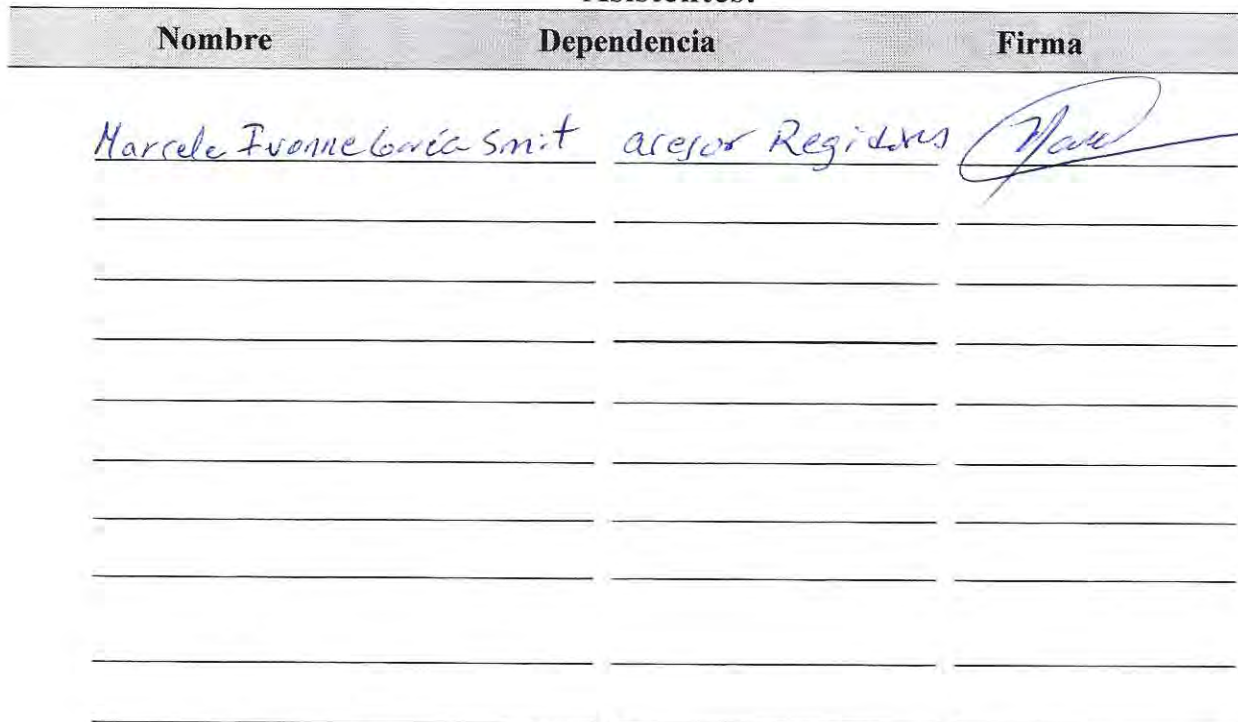 Nombre Dependencia Firma
Marcela Ivonne García Smit asesor Regidores